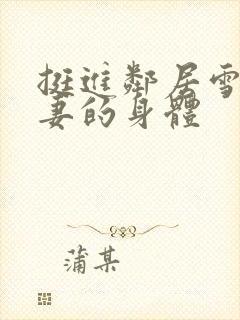 挺進鄰居雪
妻的身體
蒲某